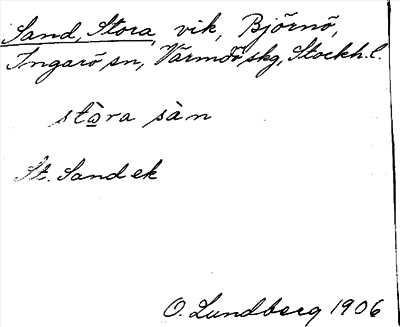 Sand, Stora, vik, Björnö,
Ingarö sn, Värmdö skg, Stockh. l.
stɷ̀ra sàn
St. Sand ek
O. Lundberg 1906